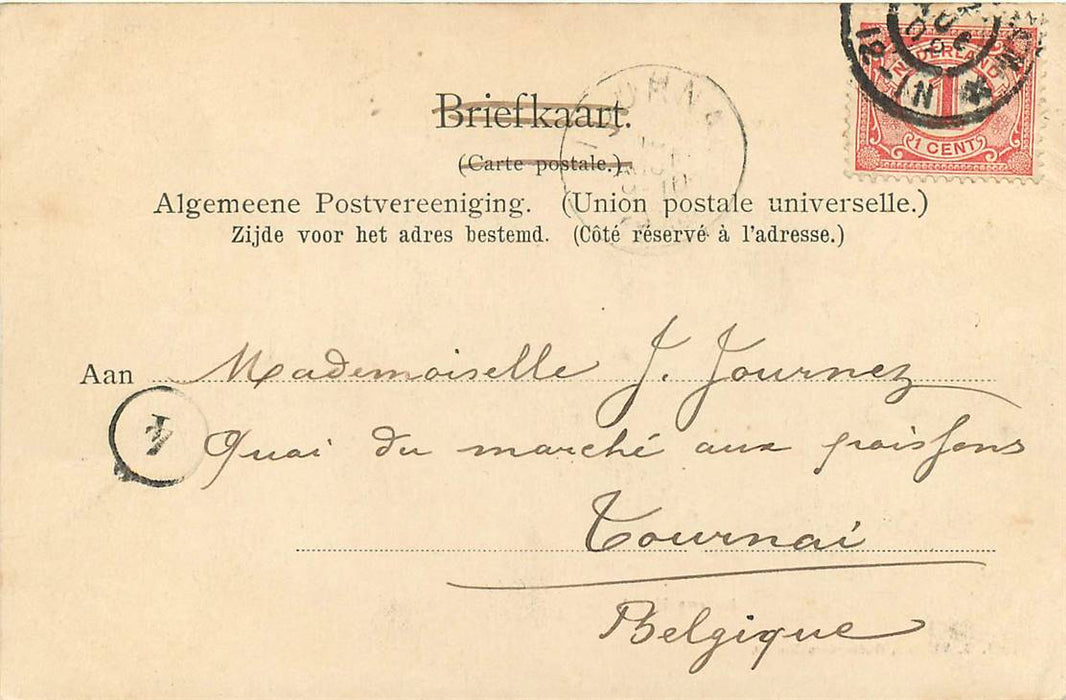 Briefkaart.
(Carte postale.)
Algemeene Postvereeniging. (Union postale universelle.)
Zijde voor het adres bestemd. (Côté réservé à l'adresse.)
NEDERLAND
1
1 CENT
12-1N
Aan Mademoiselle J. Journez
4
Quai du marché aux poissons
Tournai
Belgique